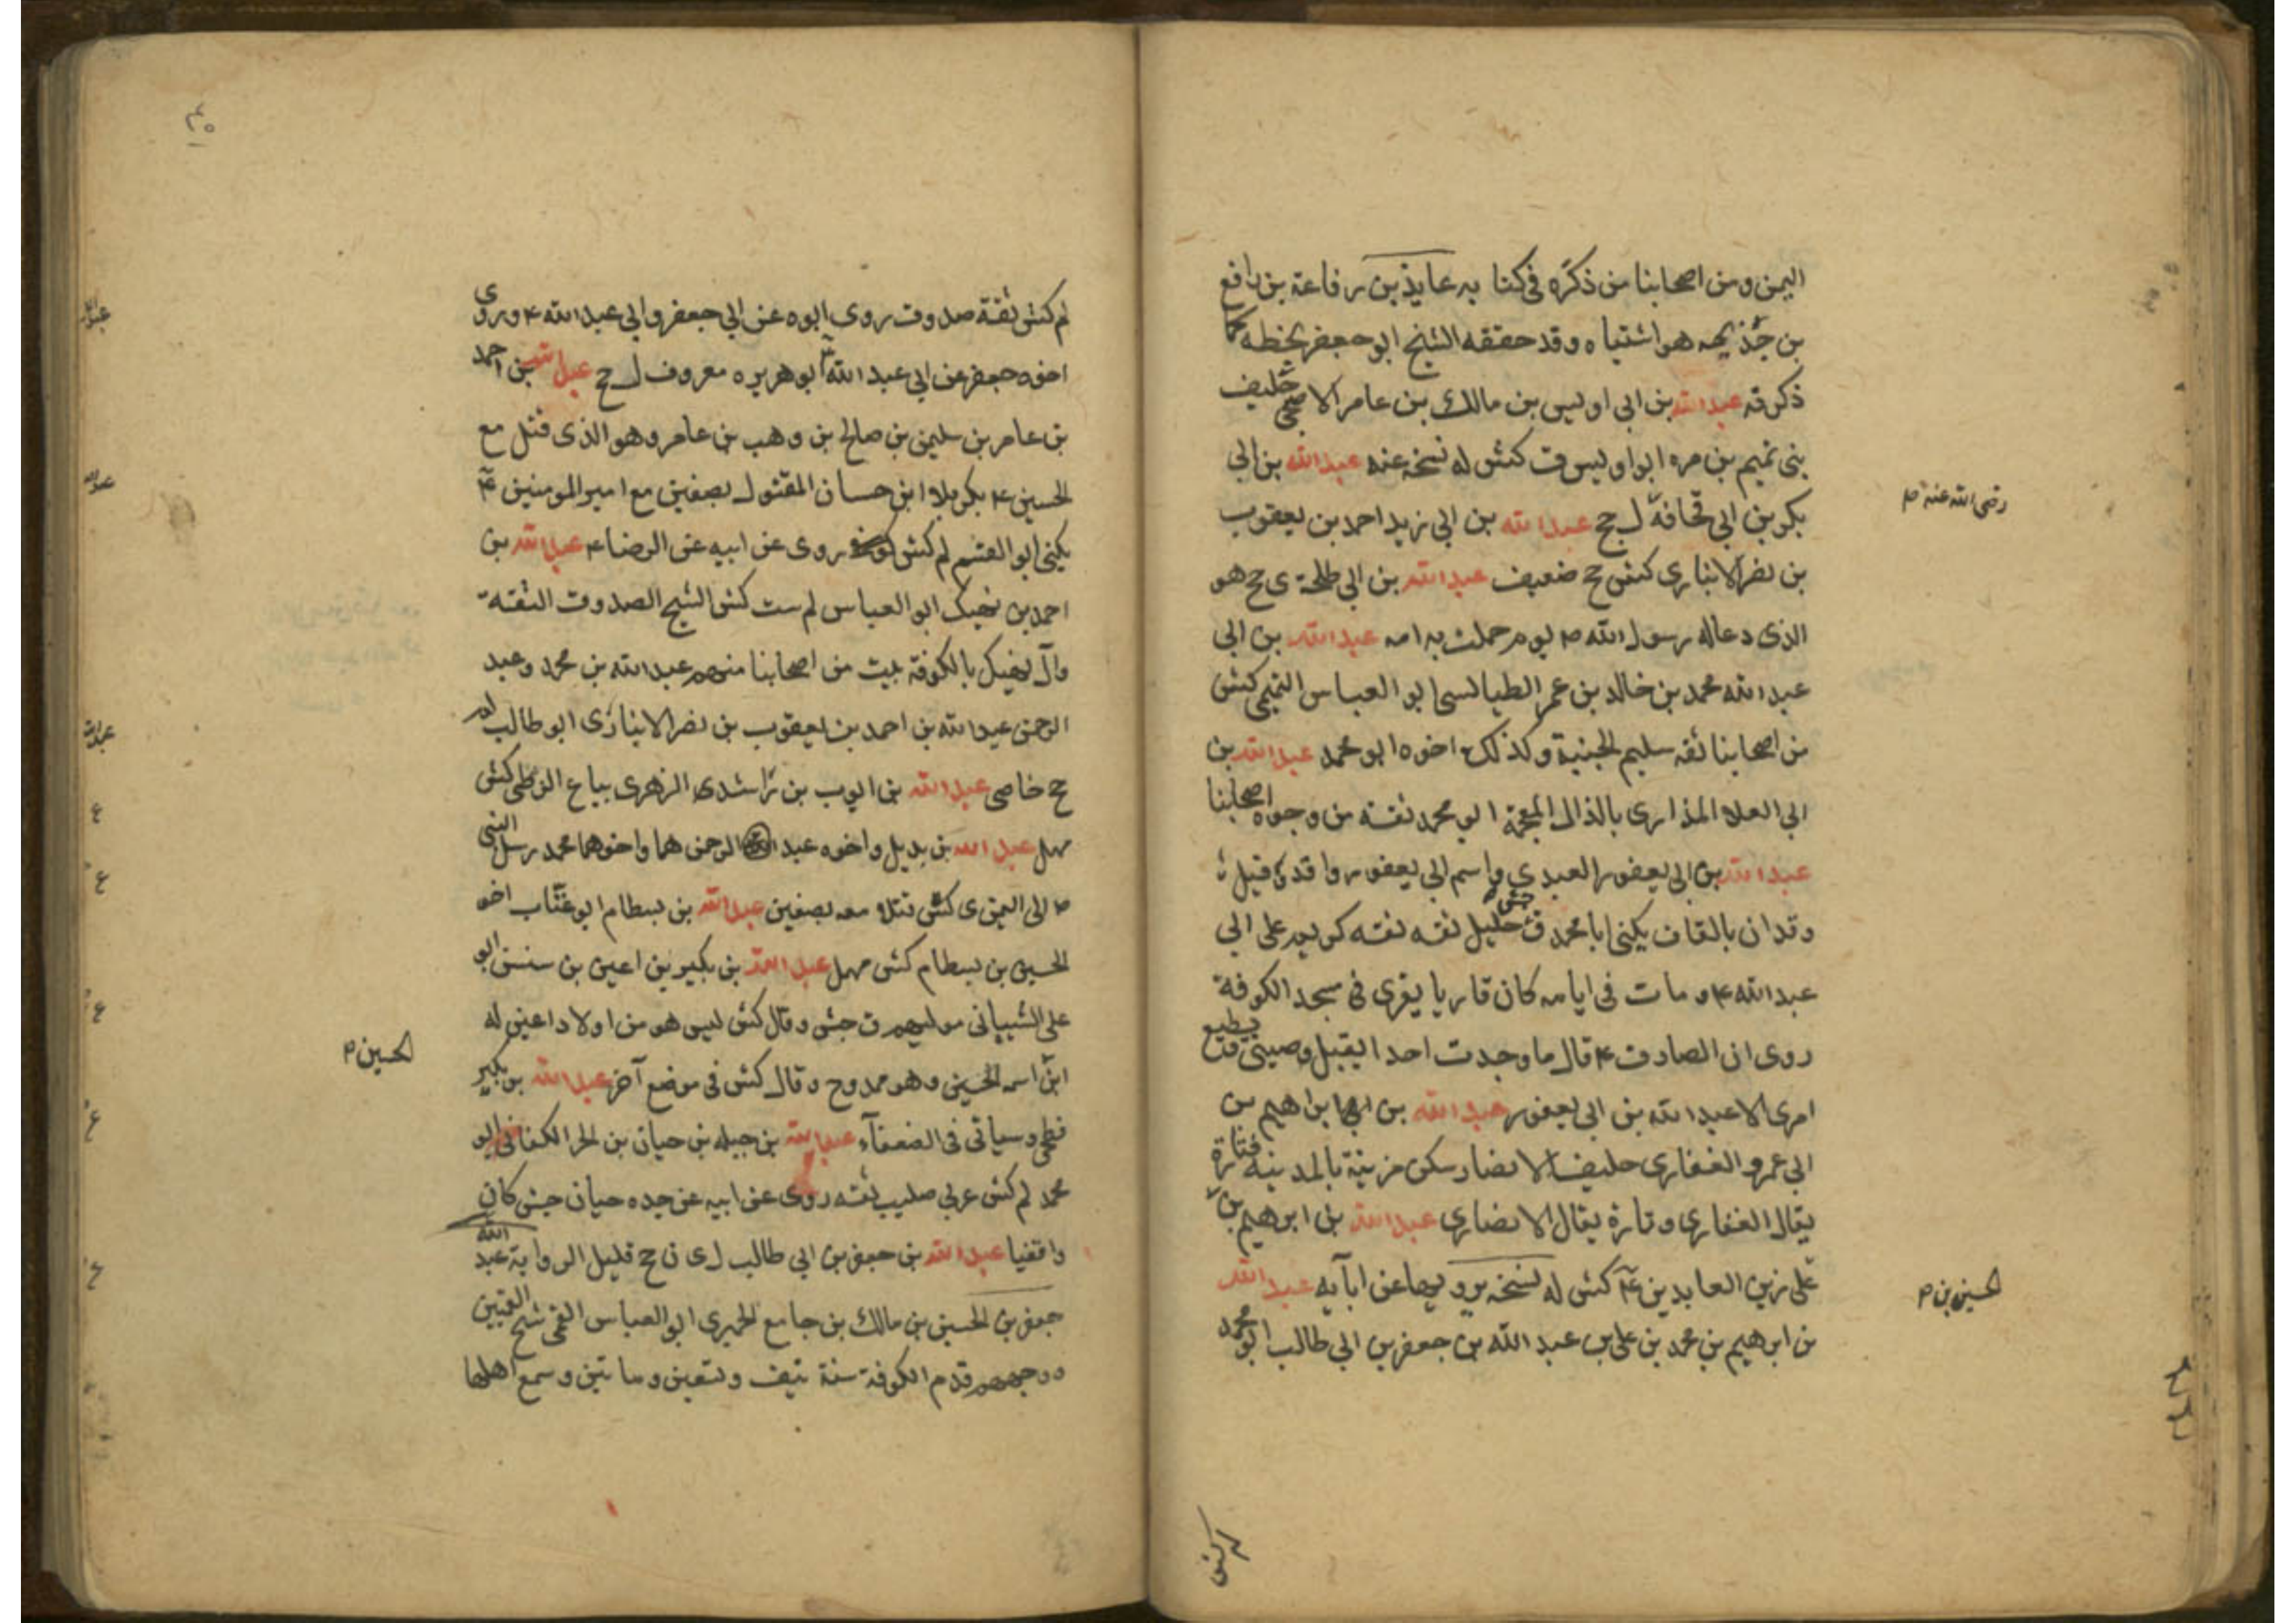 اليمن ومن اصحابنا من ذكره في كتابه عايذ بن رفاعة بن رافع
بن جذيمه هو اشتباه وقد حققه الشيخ ابو جعفر بخطه كما
ذكرته عبد الله بن ابي اويس بن مالك بن عامر الاصبحي حليف
بني تميم بن مره ابو اويس ق كش له نسخه عنه عبد الله بن ابي
بكر بن ابي قحافة ل جح عبد الله بن ابي زيد احمد بن يعقوب
رضي الله عنه م
بن نصر الانباري كش جح ضعيف عبد الله بن ابي طلحة ى جح هو
الذي دعا له رسول الله ص يوم حملت به امه عبد الله بن ابي
عبد الله محمد بن خالد بن عمر الطيالسي ابو العباس التميمي كش
من اصحابنا ثقه سليم الجنبة وكذلك اخوه ابو محمد عبد الله بن
ابي العلا المذاري بالذال المعجمة ابو محمد ثقة من وجوه اصحابنا
عبد الله بن ابي يعفور العبدي واسم ابي يعفور واقد و قيل
وقدان بالقاف يكنى ابا محمد ق جش جليل ثقه ثقه كريم على ابي
عبد الله ع و مات في ايامه كان قاريا يقرى في مسجد الكوفة
روى ان الصادق ع قال ما وجدت احدا يقبل وصيتي و يطيع
امرى الا عبد الله بن ابي يعفور عبد الله بن ابراهيم بن
ابي عمرو الغفاري حليف الانصار سكن مزينة بالمدينه فتارة
يقال الغفاري وتارة يقال الانصاري عبد الله بن ابرهيم بن
الحسين بن م
علي زين العابدين ع كش له نسخه يرويها عن ابآيه عبد الله
بن ابرهيم بن محمد بن علي بن عبد الله بن جعفر بن ابي طالب ابو محمد
لم كش
لم كش ثقة صدوق روى ابوه عن ابي جعفر و ابي عبد الله ع وروى
اخوه جعفر عن ابي عبد الله ع ابو هريره معروف ل جح عبد الله بن احمد
بن عامر بن سليمن بن صالح بن وهب بن عامر وهو الذى قتل مع
الحسين ع بكربلا ابن حسان المقتول بصفين مع امير المومنين ع
يكنى ابو القسم لم كش روى عن ابيه عن الرضا ع عبد الله بن
احمد بن نهيك ابو العباس لم ست كش الشيخ الصدوق الثقة
وآل نهيك بالكوفة بيت من اصحابنا منهم عبد الله بن محمد وعبد
الرحمن عبد الله بن احمد بن يعقوب بن نصر الانباري ابو طالب لم
جح خاصي عبد الله بن ايوب بن راشد ى الزهرى بياع الزطي كش
مهمل عبد الله بن بديل واخوه عبد الرحمن هما واخوهما محمد رسل النبي
ص الى اليمن ى كش قتلا معه بصفين عبد الله بن بسطام ابو عتاب اخو
الحسين بن بسطام كش مهمل عبد الله بن بكير بن اعين بن سنسن ابو
علي الشيباني موليهم ق جش وقال كش ليس هو من اولاد اعين له
الحسين م
ابن اسمه الحسين وهو ممدوح وقال كش في موضع آخر عبد الله بن بكير
فطحي وسياتى فى الضعفآء عبد الله بن جبله بن حيان بن الحر الكناني ابو
محمد لم كش عربي صليب ثقه روى عن ابيه عن جده حيان جش كان
واقفيا عبد الله بن جعفر بن ابي طالب ل ى ن جح قليل الرواية عبد الله
جعفر بن الحسين بن مالك بن جامع الحميري ابو العباس القمي شيخ القميين
ووجههم قدم الكوفة سنة نيف وتسعين وماتين وسمع اهلها